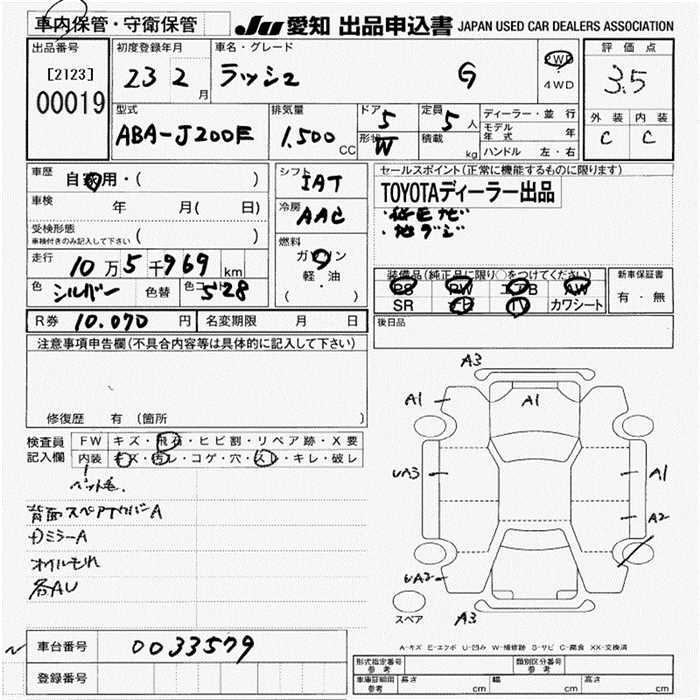 車内保管・守衛保管
JU 愛知 出品申込書 JAPAN USED CAR DEALERS ASSOCIATION
出品番号
[2123]
00019
初度登録年月
23 2 月
車名・グレード
ラッシュ G
2WD
4WD
評価点
3.5
外装 内装
C C
型式
ABA-J200E
排気量
1.500 CC
ドア
5
形状
W
定員
5 人
積載
kg
ディーラー・並行
モデル年式 年
ハンドル 左・右
車歴
自家用・( )
車検
年 月( 日)
受検形態
車検付きのみ記入して下さい ( )
走行
10万5千969km
色
シルバー 色替 S28
シフト
IAT
冷房
AAC
燃料
ガソリン
軽・油
( ・ )
セールスポイント(正常に機能するものに限ります)
TOYOTAディーラー出品
・地デジ
装備品(純正品に限り○をつけてください)
PS PW エアB AW
SR ナビ TV カワシート
新車保証書
有・無
後日品
R券 10.070 円 名変期限 月 日
注意事項申告欄(不具合内容等は具体的に記入して下さい)
修復歴 有(箇所 )
検査員
記入欄
FW キズ・飛石・ヒビ割・リペア跡・X要
内装 キズ・汚レ・コゲ・穴・スレ・キレ・破レ
ペット毛
背面スペアTカバーA
カミラーA
オイルモレ
各AU
A3
A1 A1
UA3 A1
A2
UA2
A3
スペア
A-キズ E-エクボ U-凹み W-補修跡 S-サビ C-腐食 XX-交換済
車台番号 0033579
登録番号
形式指定番号 参考
類別区分番号 参考
車庫証明用 参考 長さ cm 幅 cm 高さ cm